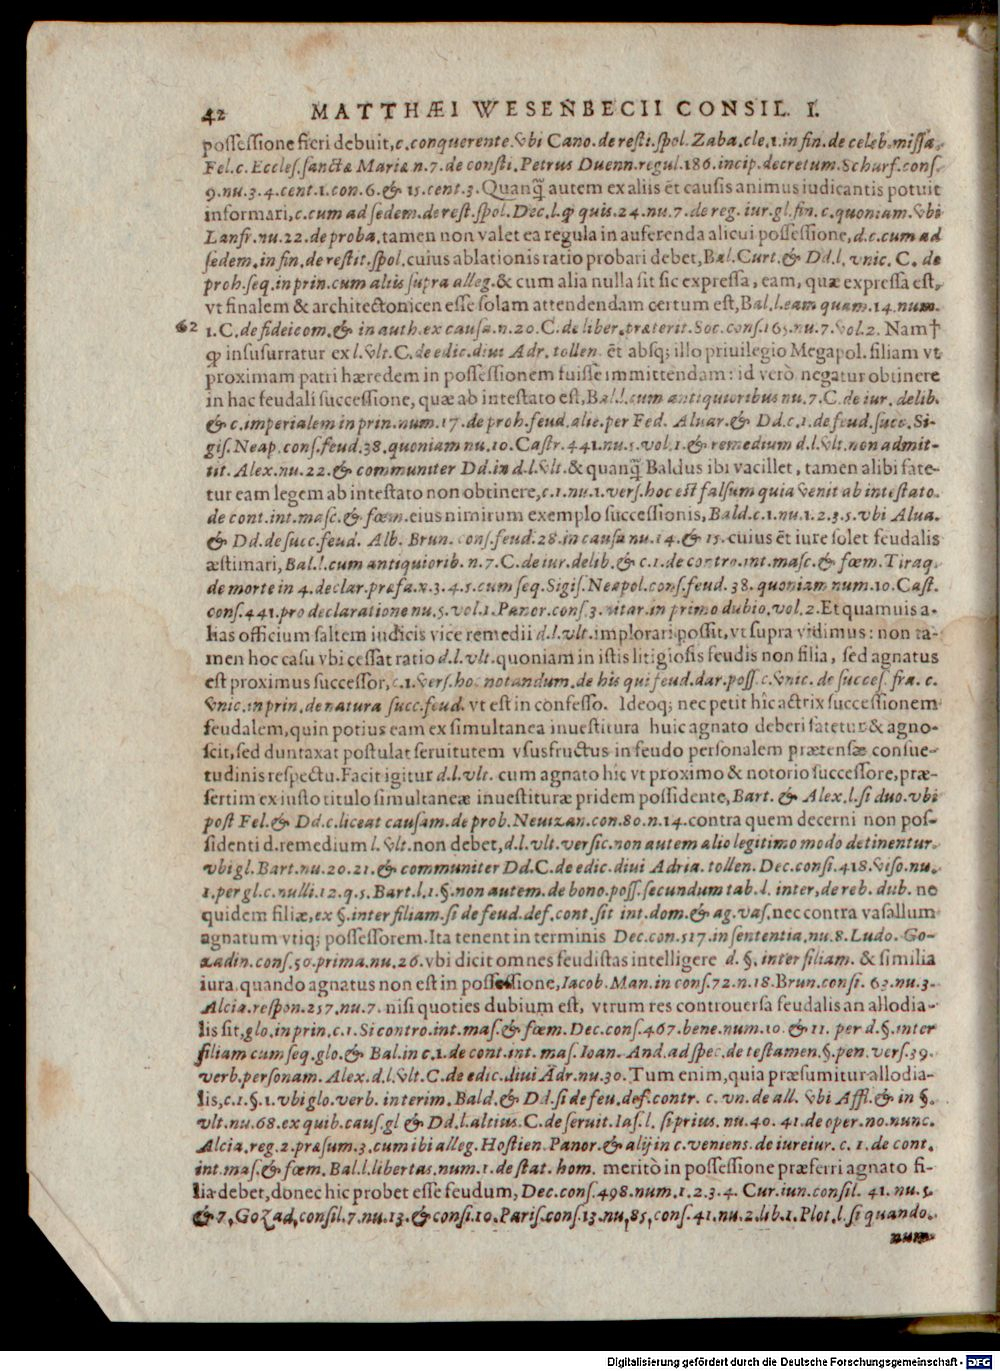 42 MATTHÆI WESENBECII CONSIL. I.
possessione fieri debuit, c. conquerente. vbi Cano. de resti. spol. Zaba. cle. 1. in fin. de celeb. missa.
Fel. c. Eccles. sanctæ Mariæ n. 7. de consti. Petrus Duenn. regul. 186. incip. decretum. Schurf. cons.
9. nu. 3. 4. cent. 1. con. 6. & 15. cent. 3. Quanq̃ autem ex aliis ēt causis animus iudicantis potuit
informari, c. cum ad sedem. de rest. spol. Dec. l. ꝙ quis. 24. nu. 7. de reg. iur. gl. fin. c. quoniam. vbi
Lanfr. nu. 22. de proba. tamen non valet ea regula in auferenda alicui possessione, d. c. cum ad
sedem. in fin. de restit. spol. cuius ablationis ratio probari debet, Bal. Curt. & Dd. l. vnic. C. de
proh. seq. in prin. cum aliis supra alleg. & cum alia nulla sit sic expressa, eam, quæ expressa est,
vt finalem & architectonicen esse solam attendendam certum est, Bal. l. eam quam. 14. num.
62 1. C. de fideicom. & in auth. ex causa. n. 20. C. de liber. præterit. Soc. cons. 165. nu. 7. vol. 2. Nam†
ꝙ insusurratur ex l. vlt. C. de edic. diui Adr. tollen. ēt absq; illo priuilegio Megapol. filiam vt
proximam patri hæredem in possessionem fuisse immittendam: id verò negatur obtinere
in hac feudali successione, quæ ab intestato est, Bal. l. cum antiquioribus nu. 7. C. de iur. delib.
& c. imperialem in prin. num. 17. de proh. feud. alie. per Fed. Aluar. & Dd. c. 1. de feud. succ. Si-
gis. Neap. cons. feud. 38. quoniam nu. 10. Castr. 441. nu. 5. vol. 1. & remedium d. l. vlt. non admit-
tit. Alex. nu. 22. & communiter Dd. in d. l. vlt. & quanq̃ Baldus ibi vacillet, tamen alibi fate-
tur eam legem ab intestato non obtinere, c. 1. nu. 1. vers. hoc est falsum quia venit ab intestato.
de cont. int. masc. & fœm. eius nimirum exemplo successionis, Bald. c. 1. nu. 1. 2. 3. 5. vbi Alua.
& Dd. de succ. feud. Alb. Brun. cons. feud. 28. in causa nu. 14. & 15. cuius ēt iure solet feudalis
æstimari, Bal. l. cum antiquiorib. n. 7. C. de iur. delib. & c. 1. de contro. int. masc. & fœm. Tiraq.
de morte in 4. declar. præfa. x. 3. 4. 5. cum seq. Sigis. Neapol. cons. feud. 38. quoniam num. 10. Cast.
cons. 441. pro declaratione nu. 5. vol. 1. Panor. cons. 3. vitar. in primo dubio. vol. 2. Et quamuis a-
lias officium saltem iudicis vice remedii d. l. vlt. implorari possit, vt supra vidimus: non ta-
men hoc casu vbi cessat ratio d. l. vlt. quoniam in istis litigiosis feudis non filia, sed agnatus
est proximus successor, c. 1. vers. hoc notandum. de his qui feud. dar. poss. c. vnic. de succes. fra. c.
vnic. in prin. de natura succ. feud. vt est in confesso. Ideoq; nec petit hîc actrix successionem
feudalem, quin potius eam ex simultanea inuestitura huic agnato deberi fatetur & agno-
scit, sed duntaxat postulat seruitutem vsusfructus in feudo personalem prætensæ consue-
tudinis respectu. Facit igitur d. l. vlt. cum agnato hîc vt proximo & notorio successore, præ-
sertim ex iusto titulo simultaneæ inuestituræ pridem possidente, Bart. & Alex. l. si duo. vbi
post Fel. & Dd. c. liceat causam. de prob. Neuizan. con. 80. n. 14. contra quem decerni non pos-
sidenti d. remedium l. vlt. non debet, d. l. vlt. versic. non autem alio legitimo modo detinentur.
vbi gl. Bart. nu. 20. 21. & communiter Dd. C. de edic. diui Adria. tollen. Dec. consi. 418. viso. nu.
1. per gl. c. nulli. 12. q. 5. Bart. l. 1. §. non autem. de bono. poss. secundum tab. l. inter, de reb. dub. ne
quidem filiæ, ex §. inter filiam. si de feud. def. cont. sit int. dom. & ag. vas. nec contra vasallum
agnatum vtiq; possessorem. Ita tenent in terminis Dec. con. 517. in sententia. nu. 8. Ludo. Go-
zadin. cons. 50. prima. nu. 26. vbi dicit omnes feudistas intelligere d. §. inter filiam. & similia
iura. quando agnatus non est in possessione, Iacob. Man. in cons. 72. n. 18. Brun. consi. 63. nu. 3.
Alcia. respon. 257. nu. 7. nisi quoties dubium est, vtrum res controuersa feudalis an allodia-
lis sit, glo. in prin. c. 1. Si contro. int. mas. & fœm. Dec. cons. 467. bene. num. 10. & 11. per d. §. inter
filiam cum seq. glo. & Bal. in c. 1. de cont. int. mas. Ioan. And. ad spec. de testamen. §. pen. vers. 39.
verb. personam. Alex. d. l. vlt. C. de edic. diui Adr. nu. 30. Tum enim, quia præsumitur allodia-
lis, c. 1. §. 1. vbi glo. verb. interim. Bald. & Dd. si de feu. def. contr. c. vn. de all. vbi Affl. & in §.
vlt. nu. 68. ex quib. caus. gl & Dd. l. altius. C. de seruit. Ias. l. si prius. nu. 40. 41. de oper. no. nunc.
Alcia. reg. 2. præsum. 3. cum ibi alleg. Hostien. Panor. & alij in c. veniens. de iureiur. c. 1. de cont.
int. mas. & fœm. Bal. l. libertas. num. 1. de stat. hom. meritò in possessione præferri agnato fi-
lia debet, donec hic probet esse feudum, Dec. cons. 498. num. 1. 2. 3. 4. Cur. iun. consil. 41. nu. 5.
& 7. Gozad. consil. 7. nu. 13. & consi. 10. Paris. cons. 13. nu. 85. cons. 41. nu. 2. lib. 1. Plot. l. si quando.
num.
Digitalisierung gefördert durch die Deutsche Forschungsgemeinschaft - DFG